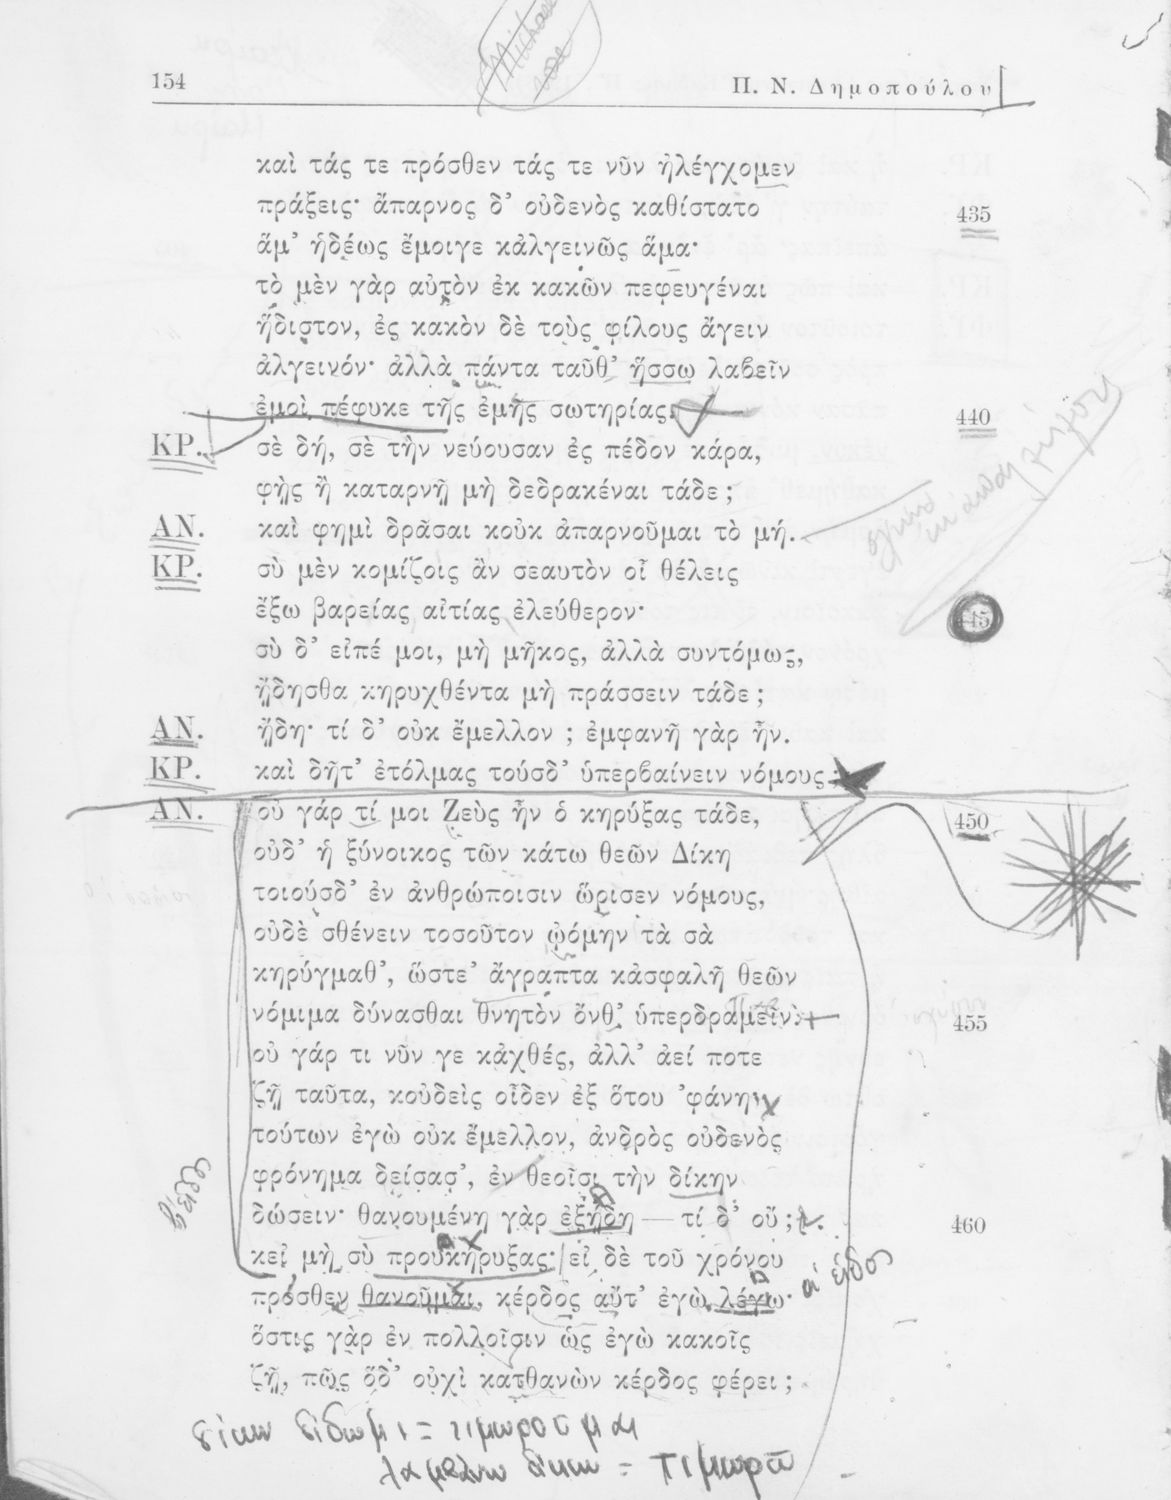 154
Π. Ν. Δημοπούλου
καὶ τάς τε πρόσθεν τάς τε νῦν ἠλέγχομεν
πράξεις· ἄπαρνος δ’ οὐδενὸς καθίστατο 435
ἅμ’ ἡδέως ἔμοιγε κἀλγεινῶς ἅμα·
τὸ μὲν γὰρ αὐτὸν ἐκ κακῶν πεφευγέναι
ἥδιστον, ἐς κακὸν δὲ τοὺς φίλους ἄγειν
ἀλγεινόν· ἀλλὰ πάντα ταῦθ’ ἥσσω λαβεῖν
ἐμοὶ πέφυκε τῆς ἐμῆς σωτηρίας. 440
ΚΡ. σὲ δή, σὲ τὴν νεύουσαν ἐς πέδον κάρα,
φῂς ἢ καταρνῇ μὴ δεδρακέναι τάδε ;
ΑΝ. καὶ φημὶ δρᾶσαι κοὐκ ἀπαρνοῦμαι τὸ μή.
ΚΡ. σὺ μὲν κομίζοις ἂν σεαυτὸν οἷ θέλεις
ἔξω βαρείας αἰτίας ἐλεύθερον· 445
σὺ δ’ εἰπέ μοι, μὴ μῆκος, ἀλλὰ συντόμως,
ᾔδησθα κηρυχθέντα μὴ πράσσειν τάδε ;
ΑΝ. ᾔδη· τί δ’ οὐκ ἔμελλον ; ἐμφανῆ γὰρ ἦν.
ΚΡ. καὶ δῆτ’ ἐτόλμας τούσδ’ ὑπερβαίνειν νόμους ;
ΑΝ. οὐ γάρ τί μοι Ζεὺς ἦν ὁ κηρύξας τάδε, 450
οὐδ’ ἡ ξύνοικος τῶν κάτω θεῶν Δίκη
τοιούσδ’ ἐν ἀνθρώποισιν ὥρισεν νόμους,
οὐδὲ σθένειν τοσοῦτον ᾠόμην τὰ σὰ
κηρύγμαθ’, ὥστε’ ἄγραπτα κἀσφαλῆ θεῶν
νόμιμα δύνασθαι θνητὸν ὄνθ’ ὑπερδραμεῖν· 455
οὐ γάρ τι νῦν γε κἀχθές, ἀλλ’ ἀεί ποτε
ζῇ ταῦτα, κοὐδεὶς οἶδεν ἐξ ὅτου ’φάνη·
τούτων ἐγὼ οὐκ ἔμελλον, ἀνδρὸς οὐδενὸς
φρόνημα δείσασ’, ἐν θεοῖσι τὴν δίκην
δώσειν· θανουμένη γὰρ ἐξῄδη — τί δ’ οὔ ; 460
κεἰ μὴ σὺ προὐκήρυξας· εἰ δὲ τοῦ χρόνου
πρόσθεν θανοῦμαι, κέρδος αὔτ’ ἐγὼ λέγω·
ὅστις γὰρ ἐν πολλοῖσιν ὡς ἐγὼ κακοῖς
ζῇ, πῶς ὅδ’ οὐχὶ κατθανὼν κέρδος φέρει ;
δίκην δίδωμι = τιμωρουμαι
λαμβάνω δίκην = τιμωρῶ